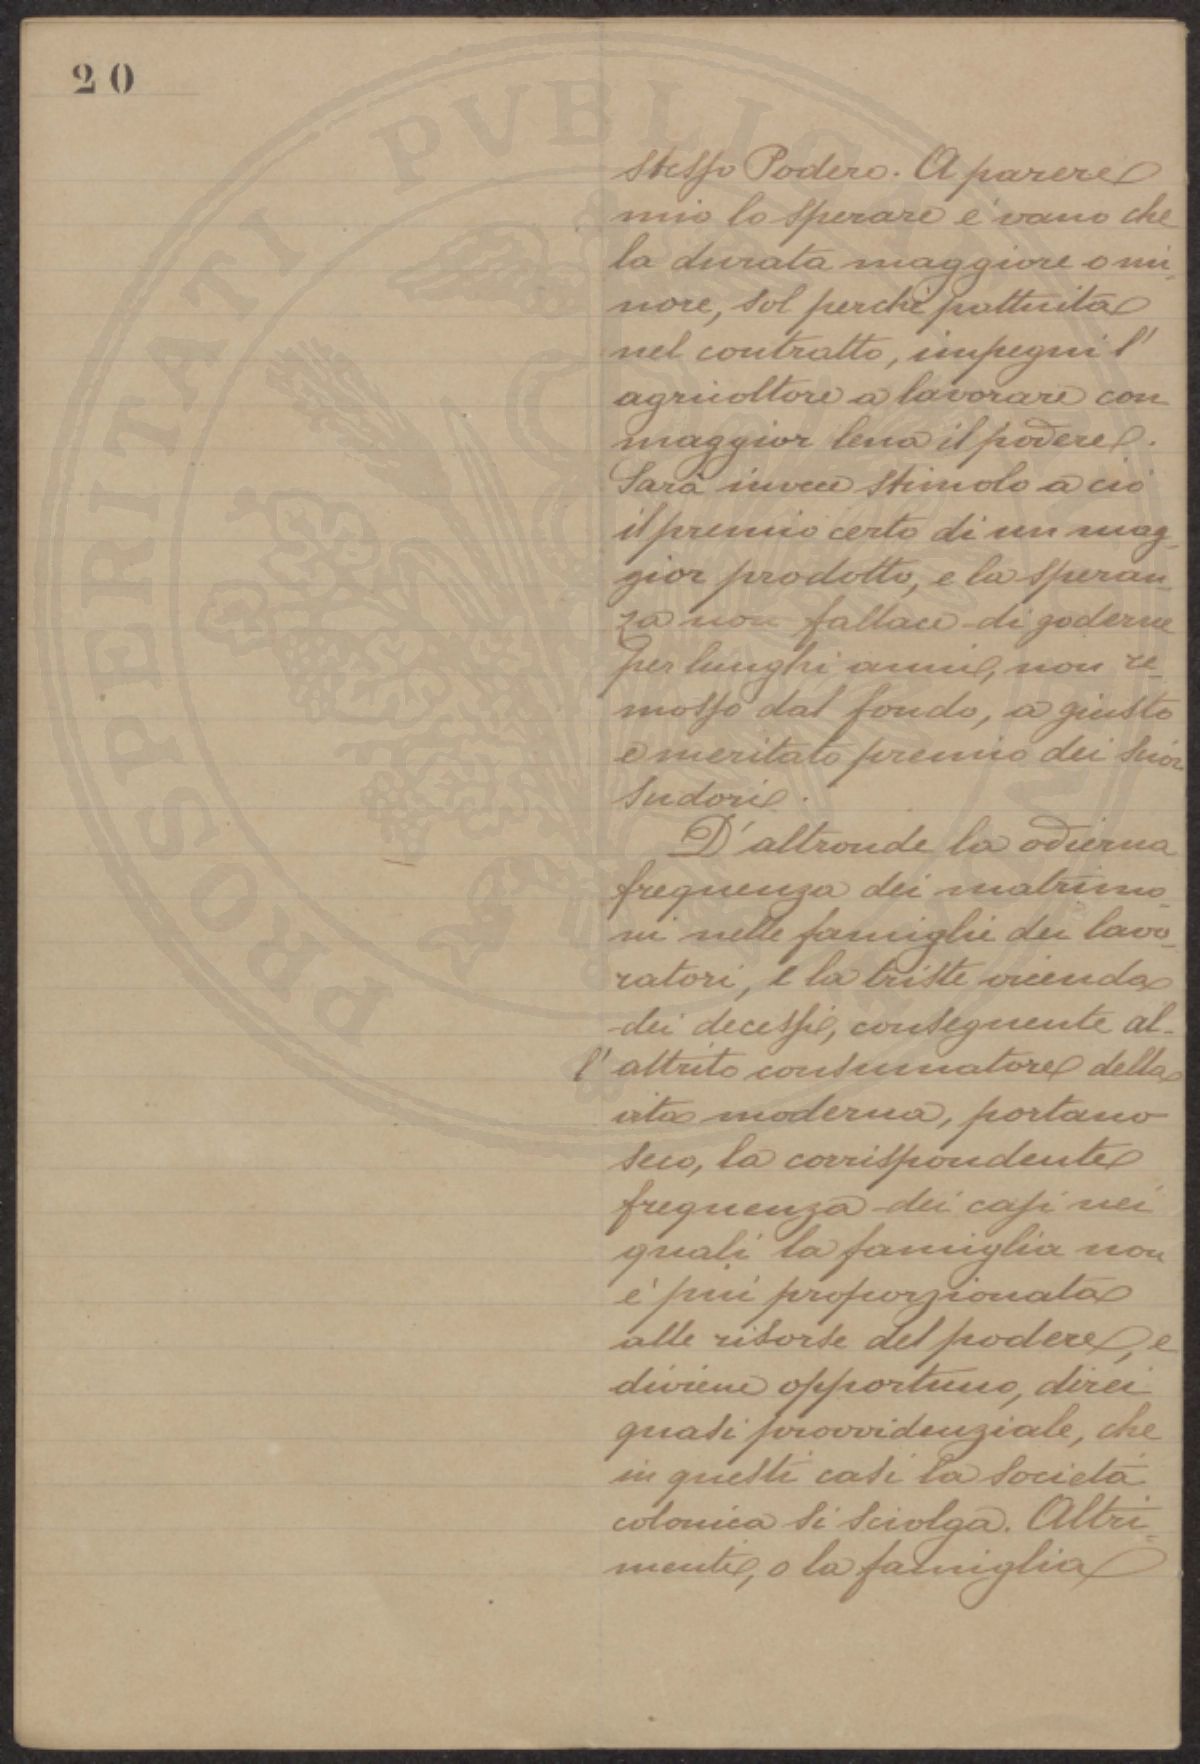 20
stesso Podere. A parere
mio lo sperare e' vano che
la durata maggiore o mi-
nore, sol perchè pattuita
nel contratto, impegni l'
agricoltore a lavorare con
maggior lena il podere.
Sarà invece stimolo a ciò
il premio certo di un mag-
gior prodotto, e la speran-
za non fallace di goderne
per lunghi anni, non re-
mosso dal fondo, a giusto
e meritato premio dei suoi
sudori.
D'altronde la odierna
frequenza dei matrimo-
ni nelle famiglie dei lavo-
ratori, e la triste vicenda
dei decessi, conseguente al-
l'attrito consumatore della
vita moderna, portano
seco, la corrispondente
frequenza dei casi nei
quali la famiglia non
e' più proporzionata
alle risorse del podere, e
diviene opportuno, direi
quasi provvidenziale, che
in questi casi la società
colonica si sciolga. Altri-
menti, o la famiglia
PROSPERITATI PVBLICAE